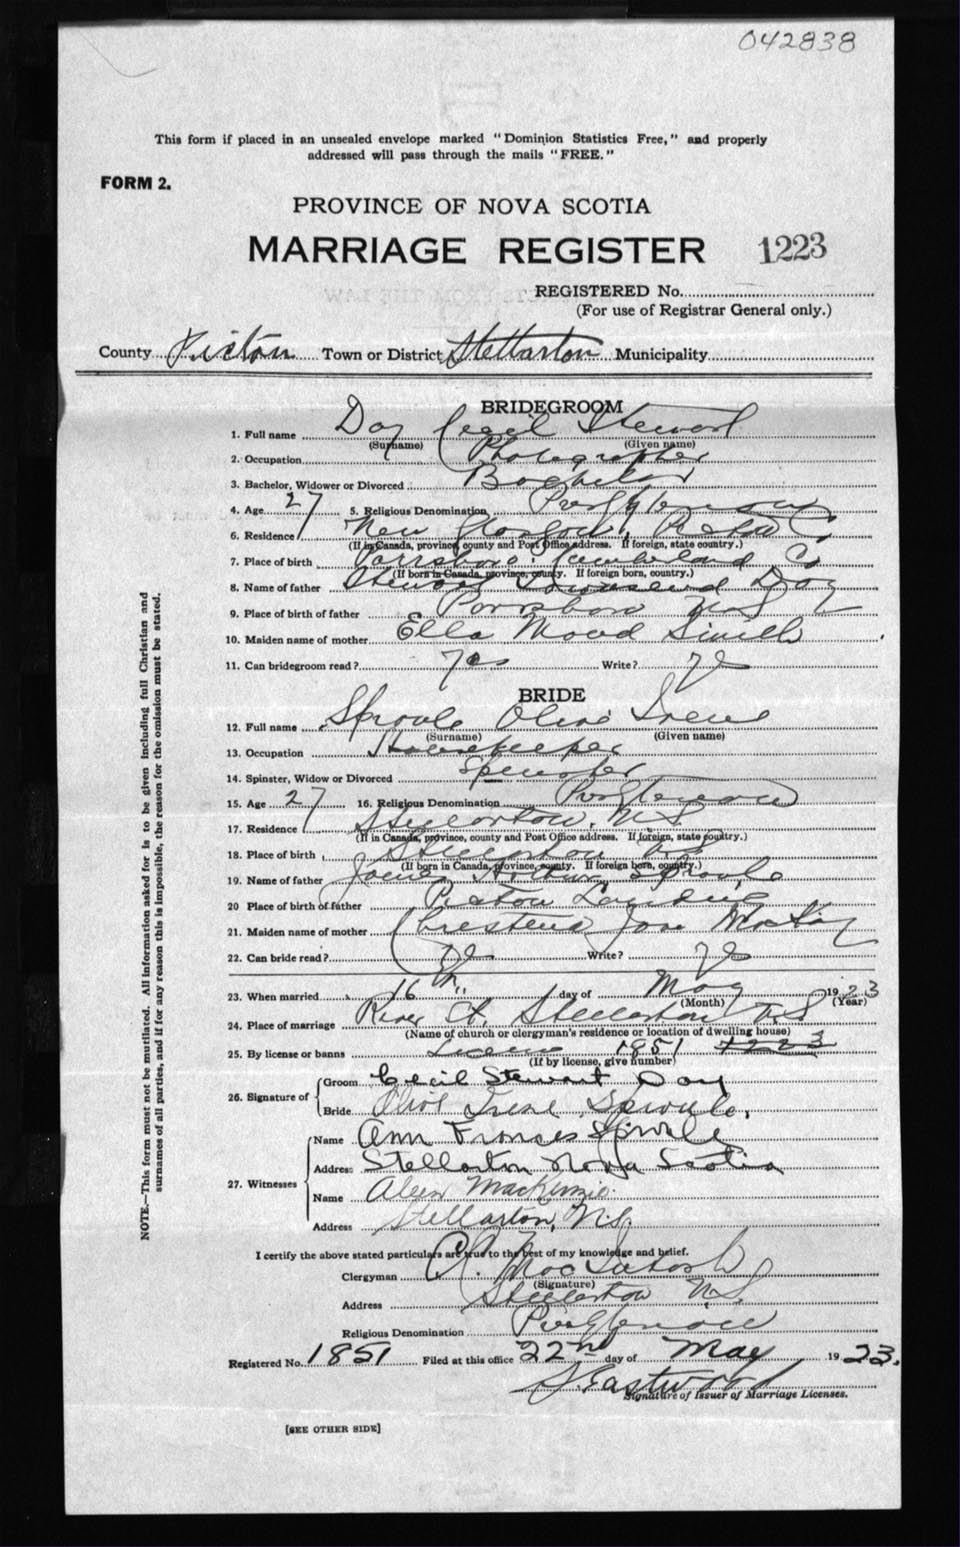 042838
This form if placed in an unsealed envelope marked "Dominion Statistics Free," and properly
addressed will pass through the mails "FREE."
FORM 2.
PROVINCE OF NOVA SCOTIA
MARRIAGE REGISTER 1223
REGISTERED No.
(For use of Registrar General only.)
County Pictou Town or District Stellarton Municipality
BRIDEGROOM
1. Full name Day Cecil Stewart
(Surname) (Given name)
2. Occupation Photographer
3. Bachelor, Widower or Divorced Bachelor
4. Age 27 5. Religious Denomination Presbyterian
6. Residence New Glasgow, Pictou Co.
(If in Canada, province, county and Post Office address. If foreign, state country.)
7. Place of birth Parrsboro Cumberland Co
(If born in Canada, province, county. If foreign born, country.)
8. Name of father Stewart Townsend Day
9. Place of birth of father Parrsboro N.S.
10. Maiden name of mother Ella Maud Smith
11. Can bridegroom read? Yes Write? Yes
BRIDE
12. Full name Sproule Olive Irene
(Surname) (Given name)
13. Occupation Housekeeper
14. Spinster, Widow or Divorced Spinster
15. Age 27 16. Religious Denomination Presbyterian
17. Residence Stellarton, N.S.
(If in Canada, province, county and Post Office address. If foreign, state coultry.)
18. Place of birth Stellarton N.S.
(If born in Canada, province, county. If foreign born, country.)
19. Name of father James Arthur Sproule
20 Place of birth of father Pictou Landing
21. Maiden name of mother Jane
22. Can bride read? Yes Write? Yes
23. When married 16th day of May 1923
(Month) (Year)
24. Place of marriage River St. Stellarton N.S.
(Name of church or clergyman's residence or location of dwelling house)
25. By license or banns License 1851 1223
(If by license, give number)
26. Signature of Groom Cecil Stewart Day
Bride Olive Irene Sproule.
27. Witnesses Name Ann Frances Sproule
Address Stellarton Nova Scotia
Name Aleen MacKenzie
Address Stellarton, N.S.
I certify the above stated particulars are true to the best of my knowledge and belief.
Clergyman C.C. MacIntosh
(Signature)
Address Stellarton N.S.
Religious Denomination Presbyterian
Registered No. 1851 Filed at this office 22nd day of May 1923.
S. Eastwood
Signature of Issuer of Marriage Licenses.
[SEE OTHER SIDE]
NOTE.—This form must not be mutilated. All information asked for is to be given including full Christian and
surnames of all parties, and if for any reason this is impossible, the reason for the omission must be stated.